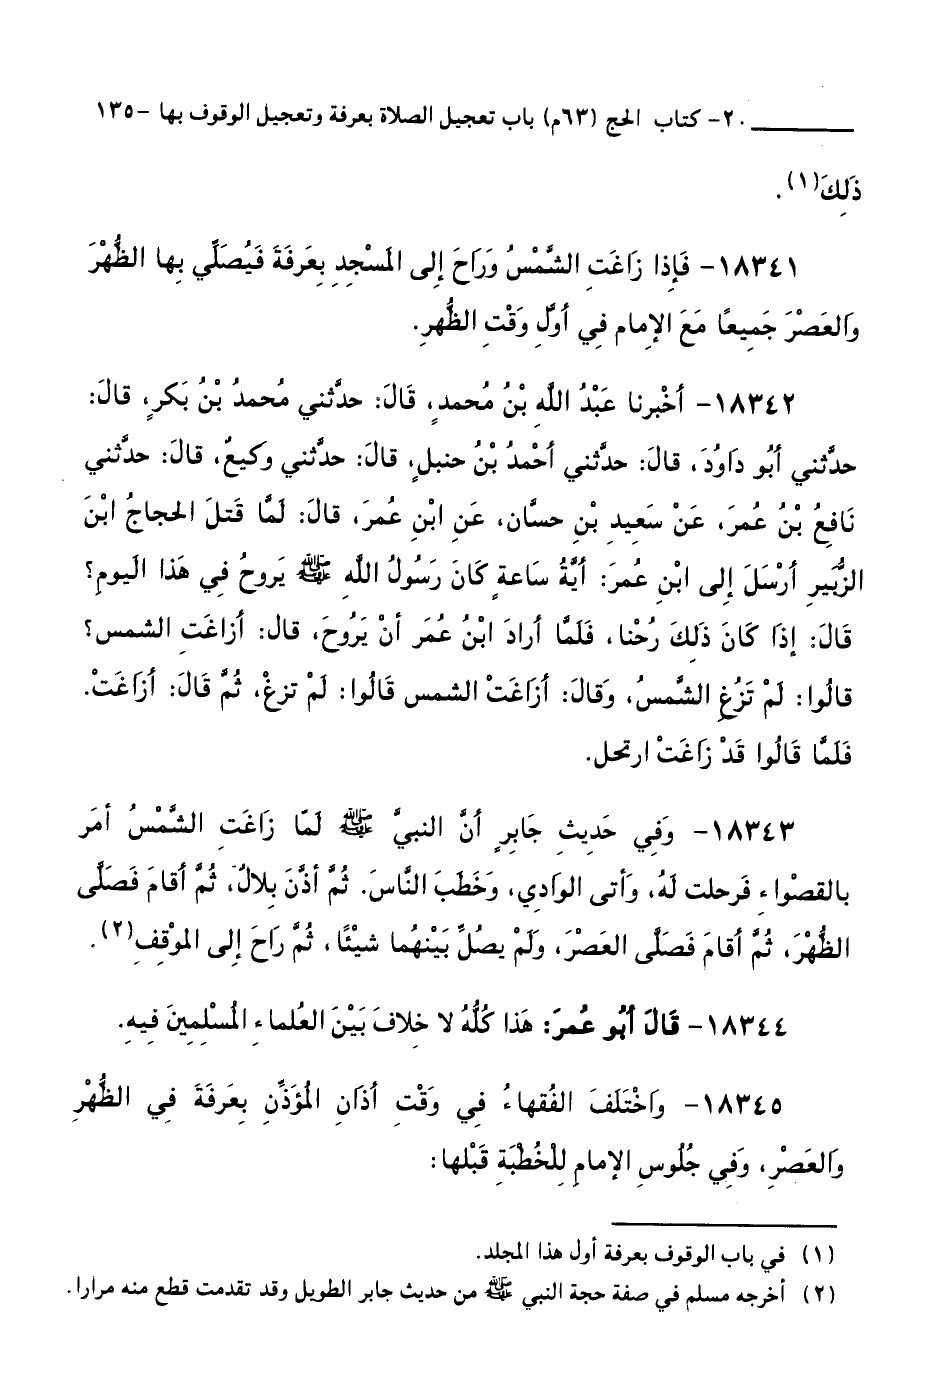 ٢٠- كتاب الحج (٦٣م) باب تعجيل الصلاة بعرفة وتعجيل الوقوف بها -١٣٥
ذَلِكَ(١).
١٨٣٤١- فَإِذا زَاغَتِ الشَّمْسُ وَرَاحَ إِلى المَسْجِدِ بِعَرفَةَ فَيُصَلِّي بِها الظُّهْرَ
وَالعَصْرَ جَمِيعًا مَعَ الإِمام فِي أوَّلِ وَقْتِ الظُّهرِ.
١٨٣٤٢- أخْبرنا عَبْدُ اللَّهِ بْنُ مُحمدٍ، قَالَ: حدَّثني مُحمدُ بْنُ بَكرٍ، قالَ:
حدَّثني أبُو دَاوُدَ، قالَ: حدَّثني أحْمدُ بْنُ حنبلٍ، قالَ: حدَّثني وكيعٌ، قالَ: حدَّثني
نَافِعُ بْنُ عُمرَ، عَنْ سَعِيدِ بْنِ حسَّان، عَنِ ابْنِ عُمرَ، قالَ: لَمَّا قَتلَ الحجاجُ ابْنَ
الزُّبَيرِ أرْسَلَ إِلى ابْنِ عُمرَ: أيَّةُ سَاعةٍ كَانَ رَسُولُ اللَّهِ ﷺ يَروحُ فِي هَذا اليَومِ؟
قَالَ: إِذَا كَانَ ذَلِكَ رُحْنا، فَلَمَّا أرادَ ابْنُ عُمَر أنْ يَرُوحَ، قال: أزاغَتِ الشمس؟
قالُوا: لَمْ تَزُغِ الشَّمسُ، وَقالَ: أزَاغَتْ الشمس قَالُوا: لَمْ تزغْ، ثُمَّ قَالَ: أزَاغَتْ.
فَلَمَّا قَالُوا قَدْ زَاغَتْ ارتحل.
١٨٣٤٣- وَفِي حَدِيثِ جَابِرٍ أنَّ النبيَّ ﷺ لَمّا زَاغَتِ الشَّمْسُ أمَر
بالقصْواءِ فَرحلت لَهُ، وَأتى الوَادِي، وَخَطَبَ النَّاسَ. ثُمَّ أذَّنَ بِلالٌ، ثُمَّ أقامَ فَصَلَّى
الظُّهْرَ، ثُمَّ أقامَ فَصَلَّى العَصْرَ، وَلَمْ يصُلِّ بَيْنَهُما شيْئًا، ثُمَّ رَاحَ إِلى المَوْقِفِ(٢).
١٨٣٤٤- قَالَ أبُو عُمرَ: هَذا كُلُّهُ لا خِلافَ بَيْنَ العُلماءِ المُسْلِمِينَ فِيهِ.
١٨٣٤٥- وَاخْتَلَفَ الفُقهاءُ فِي وَقْتِ أذَانِ المُؤَذِّنِ بِعَرفَةَ فِي الظُّهْرِ
وَالعَصْرِ، وَفِي جُلُوسِ الإِمامِ لِلْخُطْبَةِ قَبْلها:
(١) في باب الوقوف بعرفة أول هذا المجلد.
(٢) أخرجه مسلم في صفة حجة النبي ﷺ من حديث جابر الطويل وقد تقدمت قطع منه مرارا.